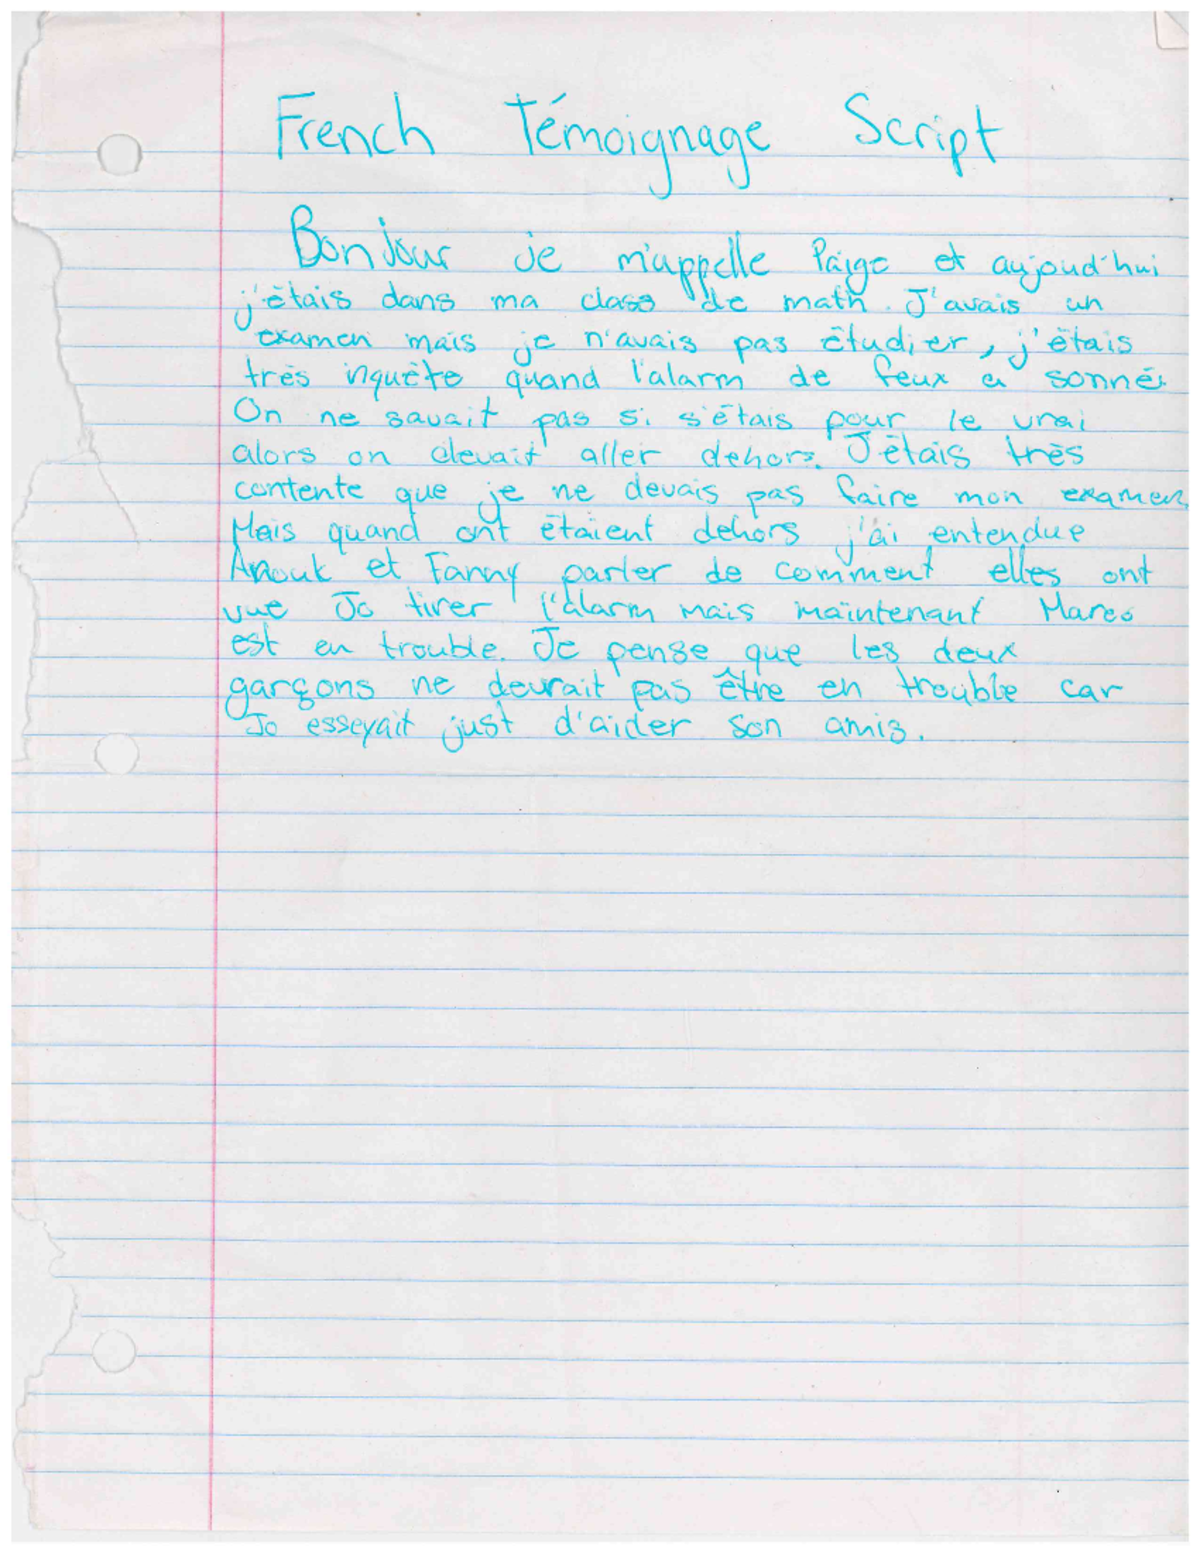 French Témoignage Script
Bonjour je m'appelle Paige et aujoud'hui
j'étais dans ma class de math. J'avais un
examen mais je n'avais pas étudier, j'étais
très inquète quand l'alarm de feux a sonné.
On ne savait pas si s'étais pour le vrai
alors on devait aller dehors. J'étais très
contente que je ne devais pas faire mon examen
Mais quand ont étaient dehors j'ai entendue
Anouk et Fanny parler de comment elles ont
vue Jo tirer l'alarm mais maintenant Marco
est en trouble. Je pense que les deux
garçons ne devrait pas être en trouble car
Jo esseyait just d'aider son amis.